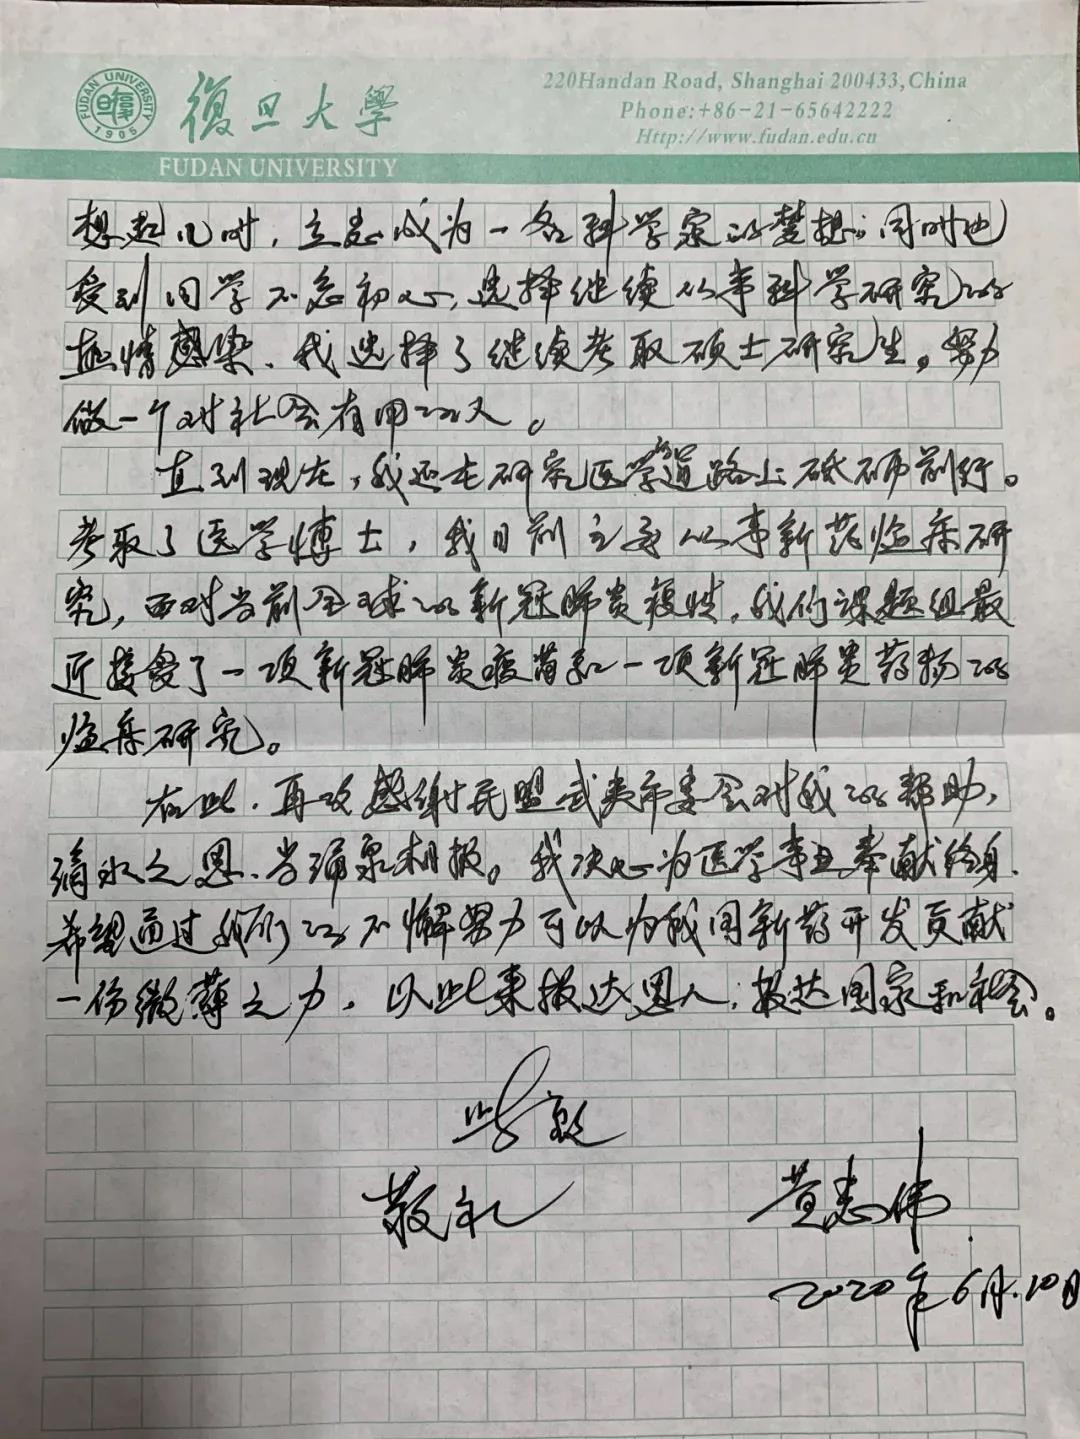 FUDAN UNIVERSITY
1905
復旦大學
FUDAN UNIVERSITY
220Handan Road, Shanghai 200433,China
Phone:+86-21-65642222
Http://www.fudan.edu.cn
想起儿时,立志成为一名科学家的梦想;同时也
受到同学不忘初心,选择继续从事科学研究的
热情感染、我选择了继续考取硕士研究生。努力
做一个对社会有用的人。
直到现在,我还在研究医学的道路上砥砺前行。
考取了医学博士,我目前主要从事新药临床研
究,面对当前全球的新冠肺炎疫情,我们课题组最
近接受了一项新冠肺炎疫苗和一项新冠肺炎药物的
临床研究。
在此.再次感谢民盟武夷市委会对我的帮助,
滴水之恩、当涌泉相报。我决心为医学事业奉献终身.
希望通过我们的不懈努力可以为我国新药开发贡献
一份微薄之力,以此来报达恩人;报达国家和社会。
此致
敬礼
黄志伟
2020年6月.10日